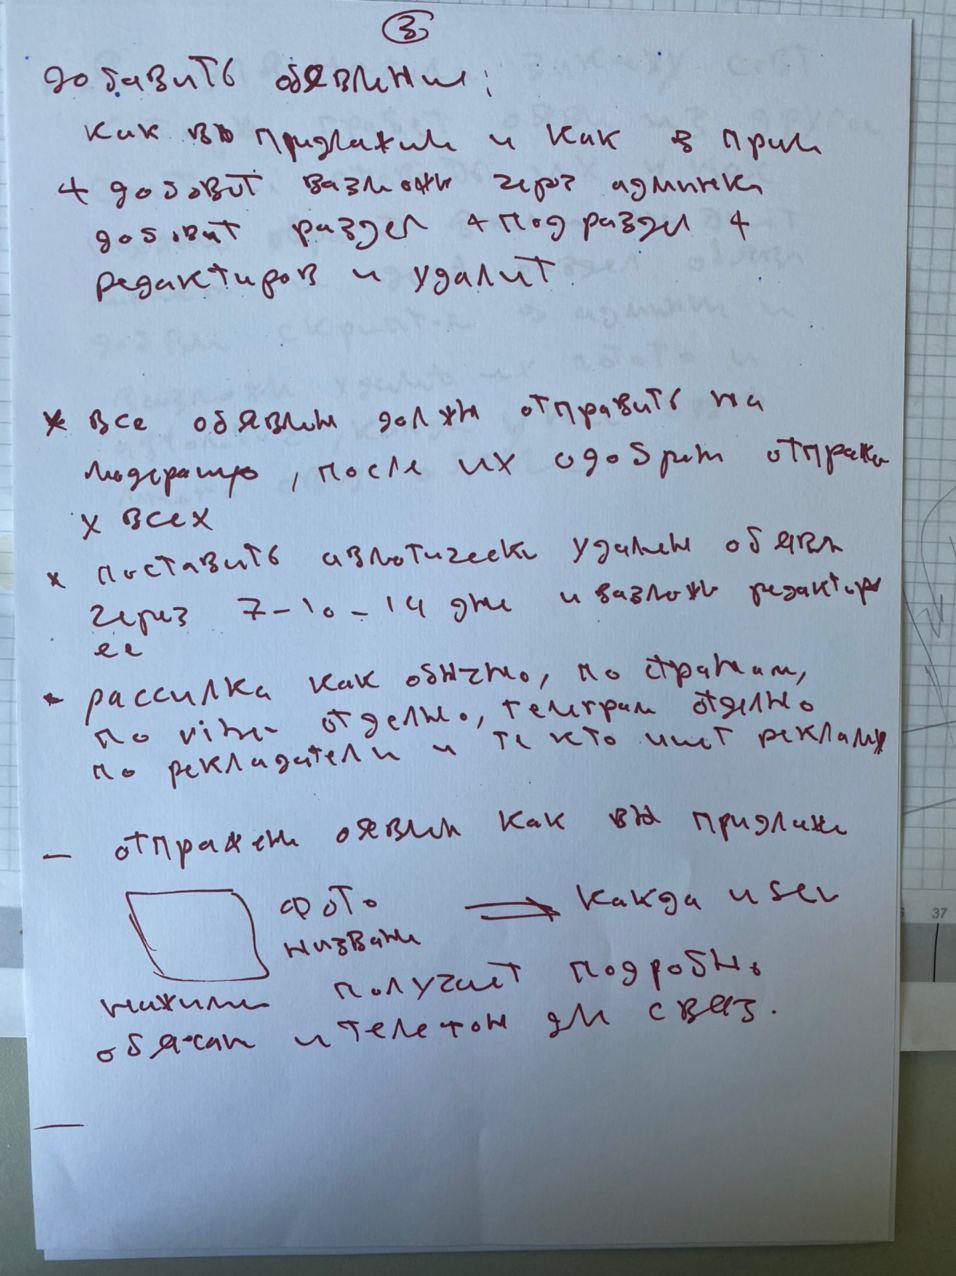 3
добавить обявлени:
как вы придлажили и как в прил
+ добовит вазможн через админки
добовит раздел + подраздел +
редактиров и удалит
* все обявлен должн отправить на
модерацию, после их одобрит отправки
х всех
* поставить автоматически удален обявл
через 7-10-14 дне и вазможн редактир
ее
- рассилка как обычно, по странам,
по отделно, телеграм отделно
по рекладатели и те кто ишет рекламу
- отправлен оявлен как вы придлажи
фото ⇒ кагда user
названи
нажими получает подробнь
обясан и телефон дли связ.
-
37